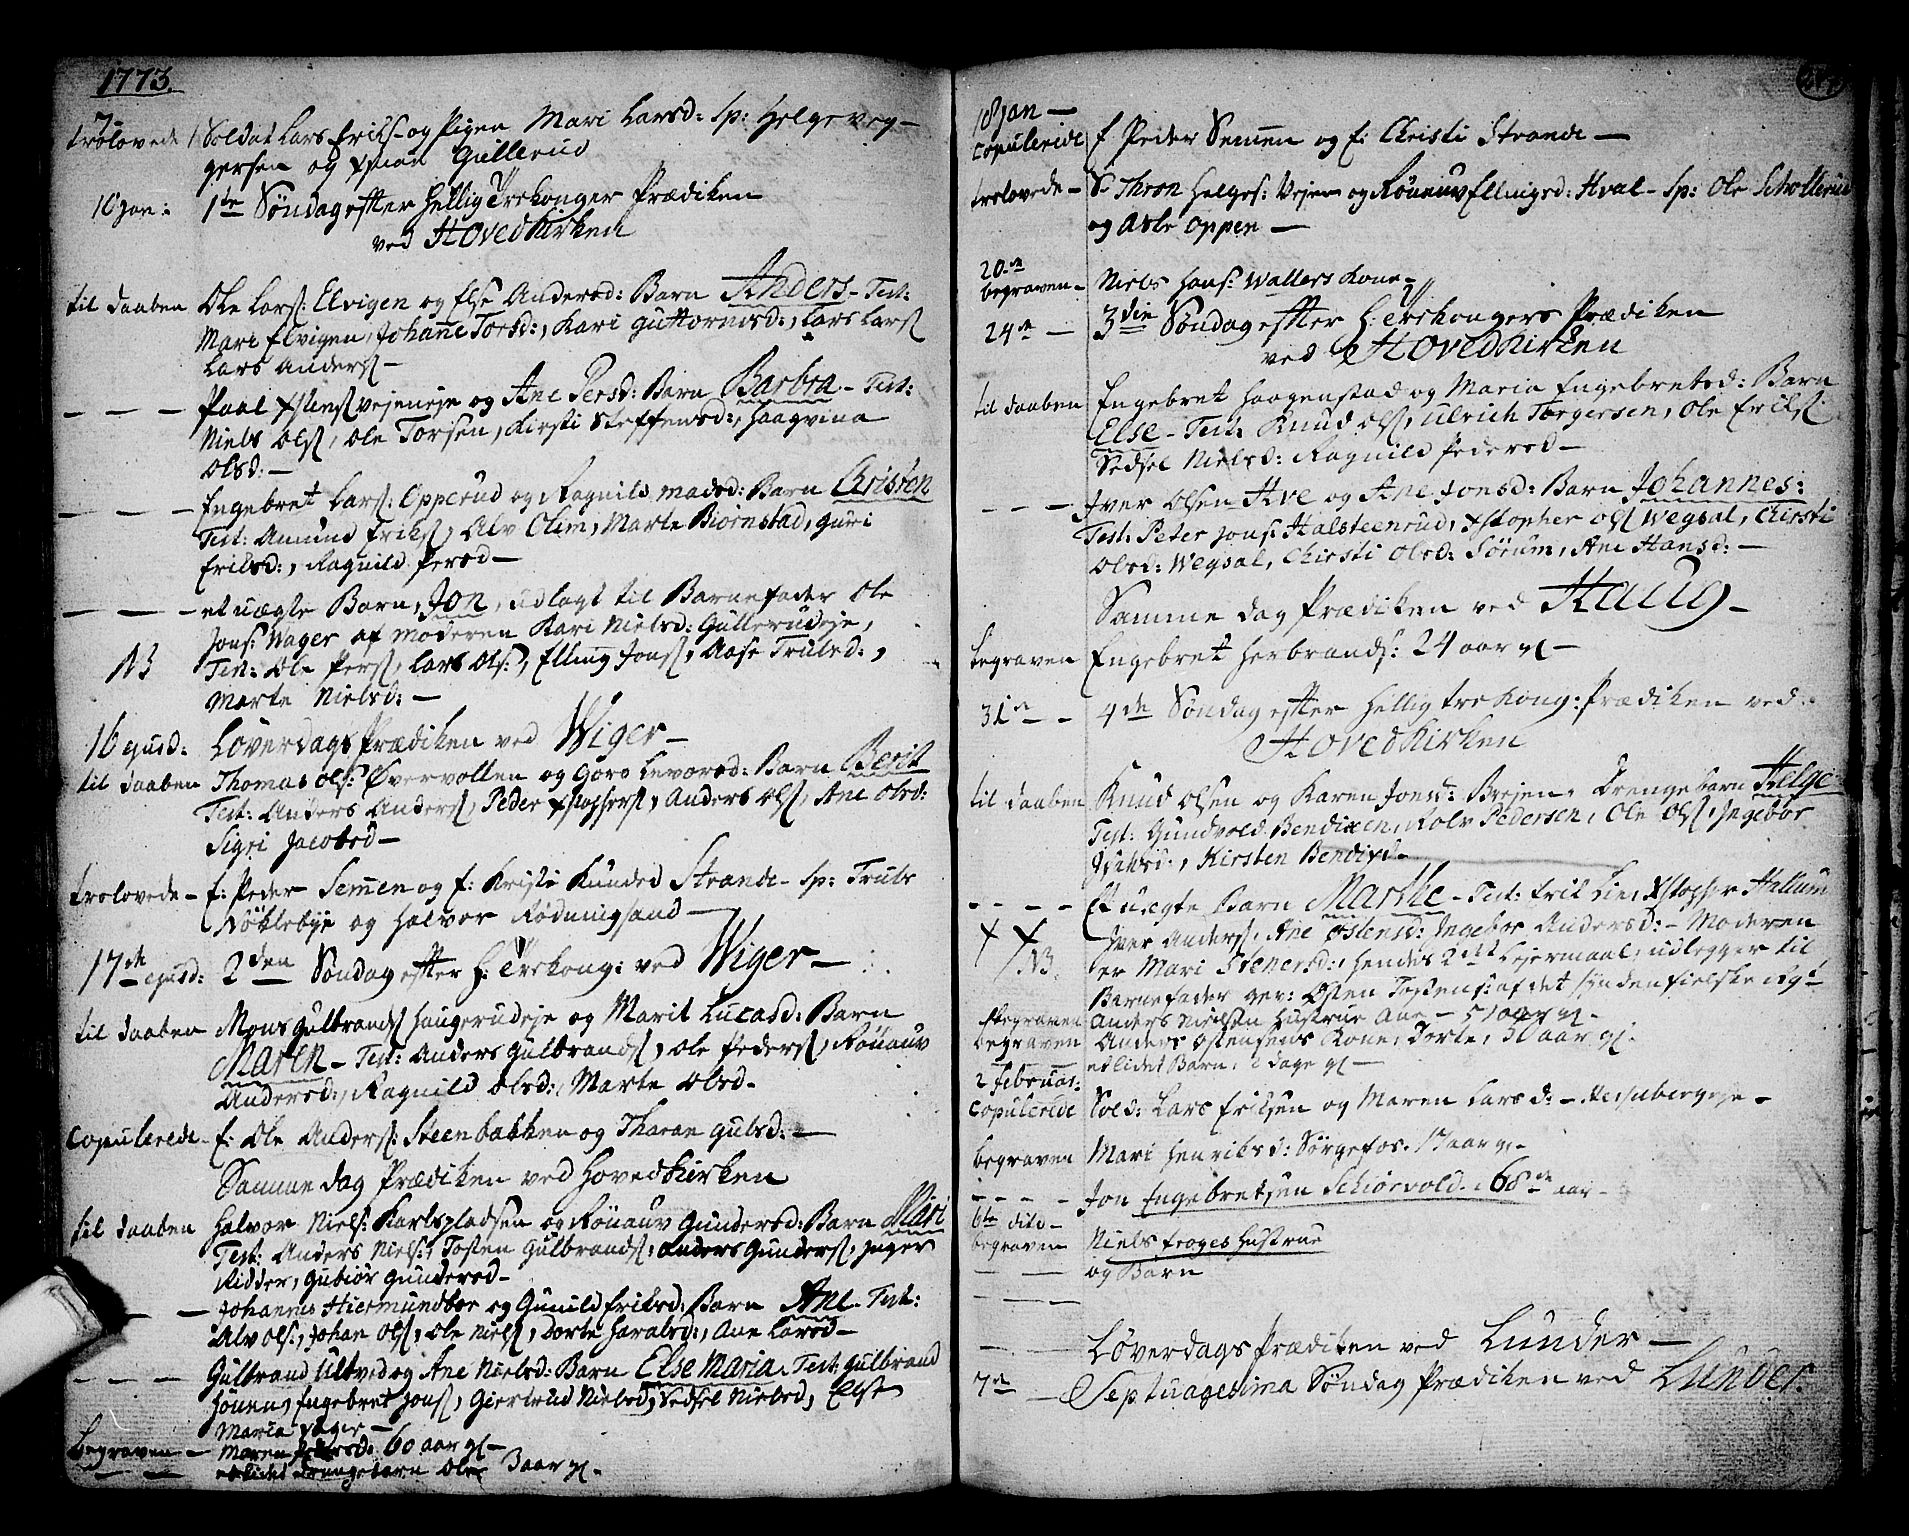 1773.
7
trolovede Soldat Lars Eriks. og Pigen Mari Larsd: Sp: Helge veg-
gersen og Gullerud
10 Jan: 1ste Søndag efter Hellig Trekonger Prædiken
ved Hovedkirken
til daaben Ole Lars: Elvigen og Else Andersd: Barn Anders - Test:
Mari Elvigen, Johanne Torsd:, Kari Guttormsd:, Lars Lars
Lars Anders -
--- Paal vejeneje og Ane Persd: Barn Barbra - Test:
Niels Ols, Ole Torsen, Kirsti Steffensd:, Haagvina
Olsd. -
--- Engebret Lars: Opperud og Ragnild madsd: Barn Christen
Test: Amund Eriks, Alv Olim, Marte Biørnstad, guri
Eriksd:, Ragnild Persd -
--- et uægte Barn, Jon, udlagt til Barnefader Ole
Jons: Wager af moderen Kari Nielsd: Gullerudeje,
NB Test: Ole Pers, Lars Ols:, Elling Jons, Aase Trulsd:,
Marte Nielsd: -
16 ejusd: Løverdags Prædiken ved Wiger -
til daaben Thomas Ols: Øvervollen og Goro Levorsd: Barn Berit
Test: Anders Anders, Peder Xstophers, Anders Ols, Ane Olsd:
Sigri Jacobsd -
trolovede - E: Peder Semmen og E: Kristi Strande - Sp: Truls
Nøklebye og Halvor Rødningsand -
17de ejusd: 2den Søndag efter H: Trekong: ved Wiger -
til daaben Mons Gulbrands Haugerudeje og Marit Lucasd: Barn
Maren - Test: Anders Gulbrands, Ole Peders, Rønauv
Andersd:, Ragnild Olsd:, Marte Olsd.
Copulerede - E: Ole Anders: Steenbakken og Tharan gulsd: -
Samme dag Prædiken ved Hovedkirken
til daaben Halvor Niels: Karlspladsen og Rønauv Gundersd: Barn Mari
Test: Anders Niels:, Tosten Gulbrands, Anders Gunders, Inger
Ridder, Gubiør Gundersd -
--- Johannes Hiermundboe og Gunild Eriksd: Barn Ane - Test:
Alv Ols:, Johan Ols, Ole Niels, Dorte Haralsd:, Ane Larsd -
--- Gulbrand Ultved og Ane Nielsd: Barn Else Maria - Test: Gulbrand
Hønen, Engebret Jons, Giertrud Nielsd, Sedsel Nielsd, Else
Maria Vager -
Begraven - Maren 60 aar gl -
--- et lidet drengebarn Ole 3 aar gl.
18 Jan -
Copulerede E Peder Semmen og E: Christi Strande -
trolovede - S. Thron Helges: Vejen og Rønauv Ellingsd: Hval - Sp: Ole Schollerud
og Asle Oppen -
20de
begraven - Niels Hans: Wallers Kone -
24de - 3die Søndag efter H: Trekongers Prædiken
ved Hovedkirken
til daaben Engebret Haagenstad og Maria Engebretsd: Barn
Else - Test: Knud Ols, Ulrich Torgersen, Ole Eriks
Sedsel Nielsd: Ragnild Pedersd -
--- Iver Olsen Ave og Ane Jonsd: Barn Johannes:
Test: Peter Jons: Halsteenrud, Xstopher Ols Wegsal, Chirsti
Olsd: Wegsal, Chirsti Olsd: Sørum, Ane Hansd: -
Samme dag Prædiken ved Haug -
begraven Engebret Herbrands: 24 aar gl -
31te - - 4de Søndag efter Hellig trekong: Prædiken ved
Hovedkirken
til daaben Knud Olsen og Karen Jonsd: Drengebarn Helge
Test: Gundvold Bendixen, Rolv Pedersen, Ole Ols, Ingebor
Kirsten Bendixd -
--- Et uægte Barn Marthe - Test: Erik Lie, Xstopher Hallum
Iver Anders, Ane Østensd: Ingebor Andersd: - Moderen
NB. er Mari Stenersd:, hendes 2det Lejermaal, udlegger til
Barnefader gev: Østen Tostens: af det Syndenfielske Rgt
Begraven Anders Nielsen Hustrue Ane - 51 aar gl -
begraven Anders Ostensens Kone, Dorte, 30 aar gl.
et lidet Barn, 2 dage gl -
2 februar:
Copulerede Sold: Lars Eriksen og Maren Larsd: -
begraven Mari Henriksd: Sørgefos. 17 aar gl -
--- Jon Engebretsen Schiørvold. 68de aar -
6te dito -
begraven Niels Froges Hustrue
--- og Barn
---
--- Løverdags Prædiken ved Lunder -
7de - Septuagesima Søndag Prædiken ved Lunder.